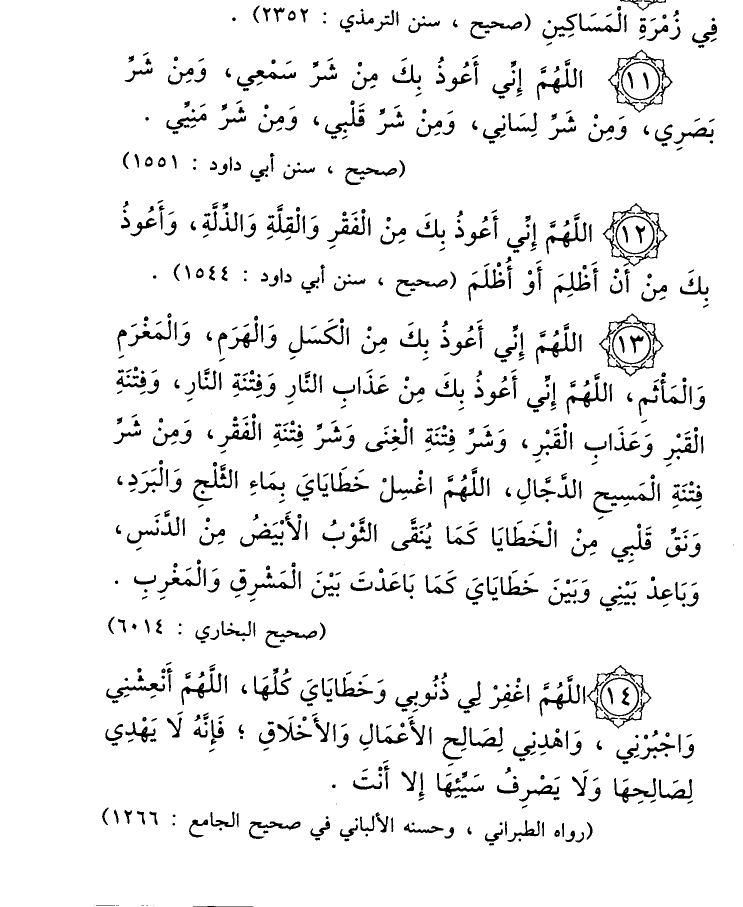 فِي زُمْرَةِ الْمَسَاكِينِ (صحيح ، سنن الترمذي : ٢٣٥٢) .
١١ اللَّهُمَّ إِنِّي أَعُوذُ بِكَ مِنْ شَرِّ سَمْعِي، وَمِنْ شَرِّ
بَصَرِي، وَمِنْ شَرِّ لِسَانِي، وَمِنْ شَرِّ قَلْبِي، وَمِنْ شَرِّ مَنِيِّي .
(صحيح ، سنن أبي داود : ١٥٥١)
١٢ اللَّهُمَّ إِنِّي أَعُوذُ بِكَ مِنْ الْفَقْرِ وَالْقِلَّةِ وَالذِّلَّةِ، وَأَعُوذُ
بِكَ مِنْ أَنْ أَظْلِمَ أَوْ أُظْلَمَ (صحيح ، سنن أبي داود : ١٥٤٤) .
١٣ اللَّهُمَّ إِنِّي أَعُوذُ بِكَ مِنْ الْكَسَلِ وَالْهَرَمِ، وَالْمَغْرَمِ
وَالْمَأْثَمِ، اللَّهُمَّ إِنِّي أَعُوذُ بِكَ مِنْ عَذَابِ النَّارِ وَفِتْنَةِ النَّارِ، وَفِتْنَةِ
الْقَبْرِ وَعَذَابِ الْقَبْرِ، وَشَرِّ فِتْنَةِ الْغِنَى وَشَرِّ فِتْنَةِ الْفَقْرِ، وَمِنْ شَرِّ
فِتْنَةِ الْمَسِيحِ الدَّجَّالِ، اللَّهُمَّ اغْسِلْ خَطَايَايَ بِمَاءِ الثَّلْجِ وَالْبَرَدِ،
وَنَقِّ قَلْبِي مِنْ الْخَطَايَا كَمَا يُنَقَّى الثَّوْبُ الْأَبْيَضُ مِنْ الدَّنَسِ،
وَبَاعِدْ بَيْنِي وَبَيْنَ خَطَايَايَ كَمَا بَاعَدْتَ بَيْنَ الْمَشْرِقِ وَالْمَغْرِبِ .
(صحيح البخاري : ٦٠١٤)
١٤ اللَّهُمَّ اغْفِرْ لِي ذُنُوبِي وَخَطَايَايَ كُلَّهَا، اللَّهُمَّ أَنْعِشْنِي
وَاجْبُرْنِي ، وَاهْدِنِي لِصَالِحِ الأَعْمَالِ وَالأَخْلَاقِ ؛ فَإِنَّهُ لَا يَهْدِي
لِصَالِحِهَا وَلَا يَصْرِفُ سَيِّئِهَا إِلا أَنْتَ .
(رواه الطبراني ، وحسنه الألباني في صحيح الجامع : ١٢٦٦)